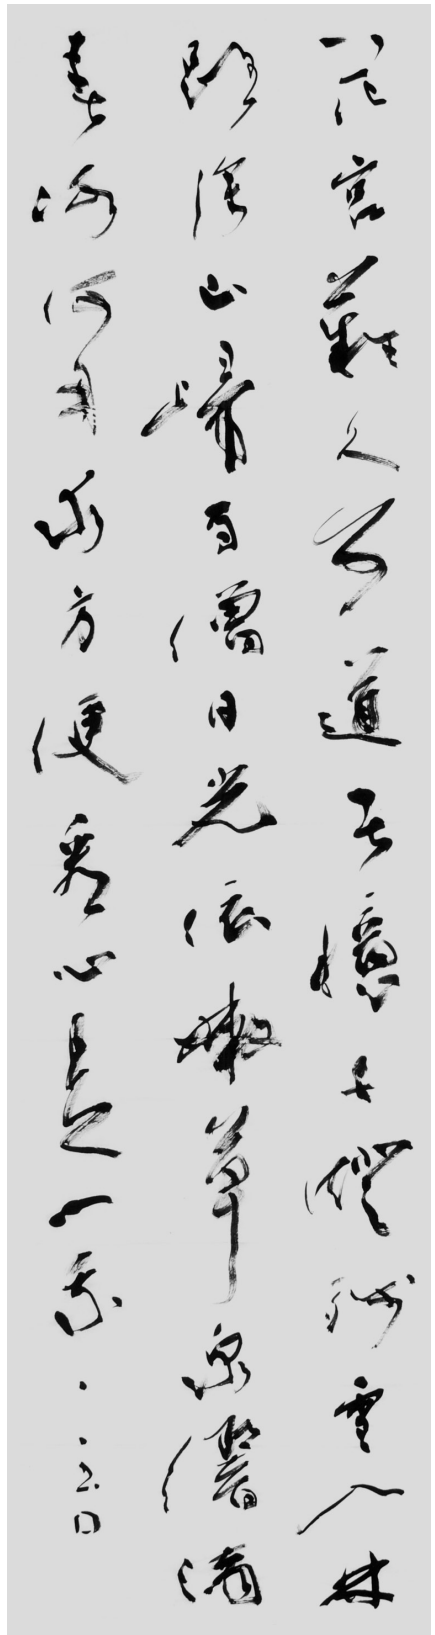 花宮難久別道者憶千燈殘雪入林
路深山歸寺僧日光依嫩草泉響滴
春冰何用求方便看心是一乘